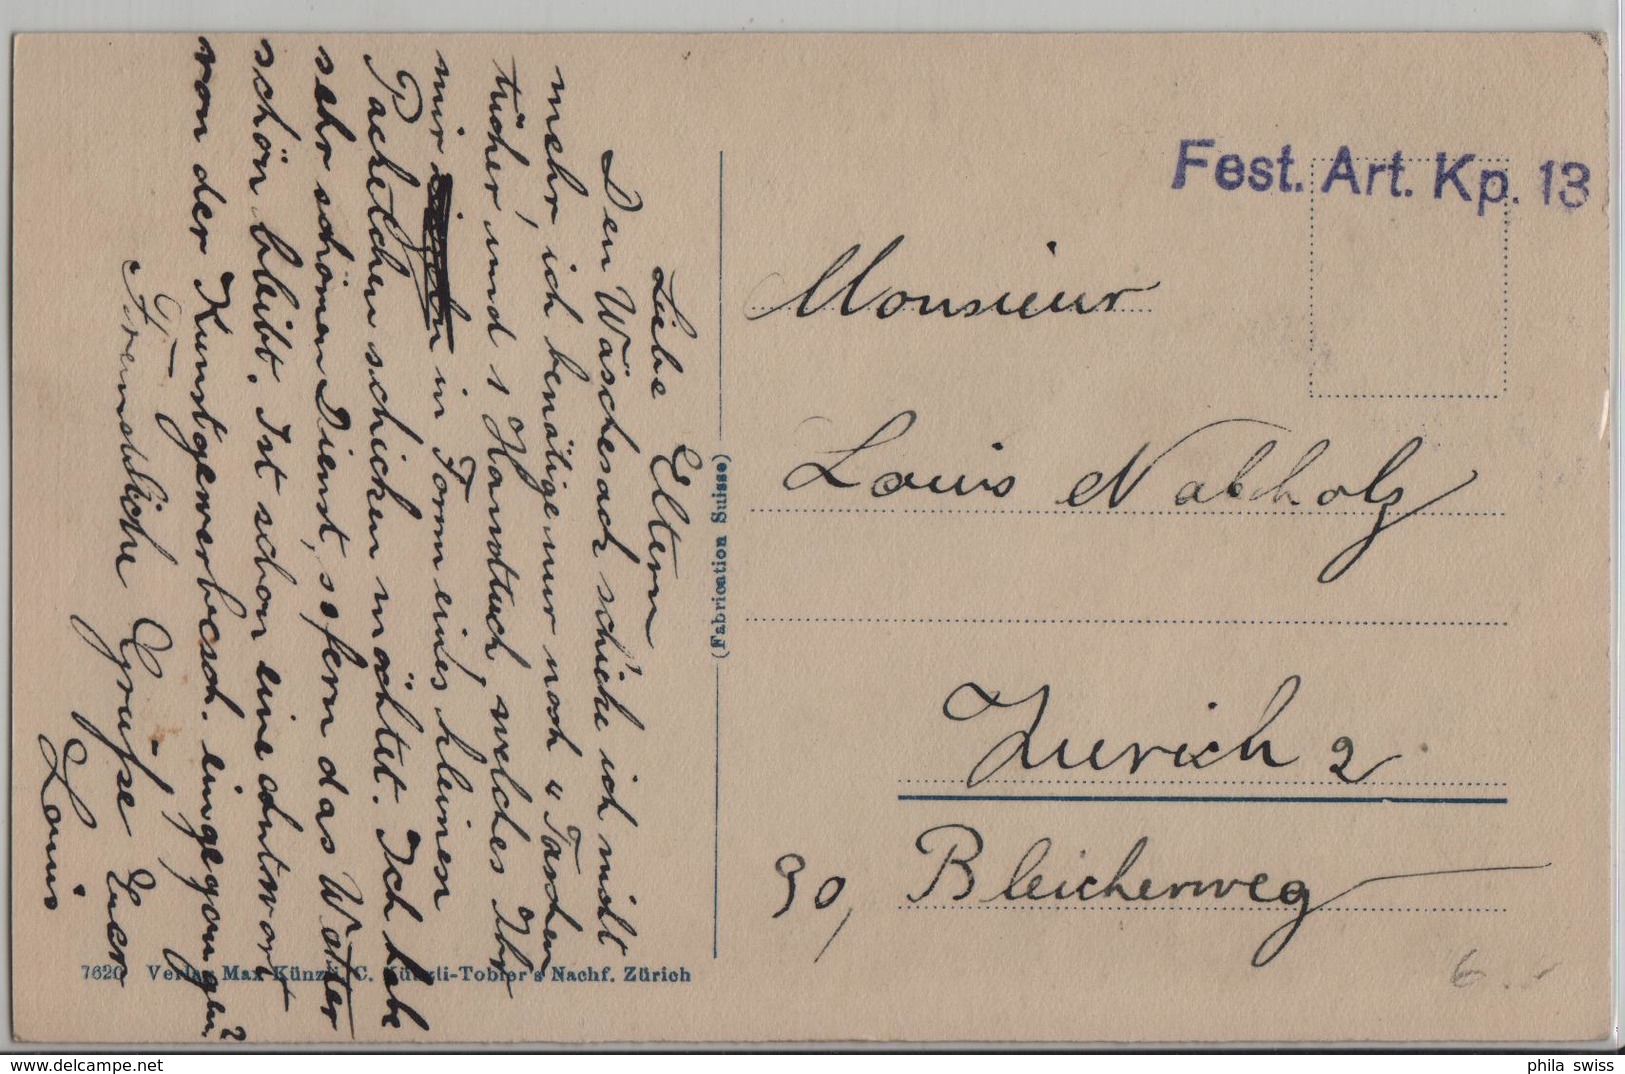 Liebe Eltern
Den Wäschesack schicke ich nicht
mehr, ich benötige nur noch 4 Taschen
tücher und 1 Handtuch, welches Ihr
mir in Form eines kleinen
Packetchen schicken möchtet. Ich habe
sehr schönen Dienst, sofern das Wetter
schön bleibt. Ist schon eine Antwort
von der Kunstgewerbesch. eingegangen?
Freundliche Grüsse Euer
Louis
(Fabrication Suisse)
7620 Verlag Max Künzli, C. Künzli-Tobler's Nachf. Zürich
Fest. Art. Kp. 13
Monsieur
Louis Nabholz
Zurich 2
90, Bleicherweg
6.-
phila swiss